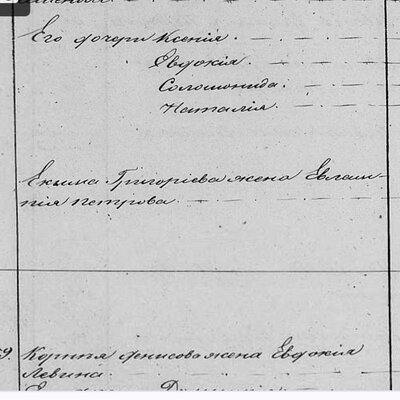 Его дочери Ксенія.
Евдокія.
Соломонида.
Наталія.
Екима Григоріева жена Евлам-
пія Петрова
9. Корнія Денисова жена Евдокія
Левина